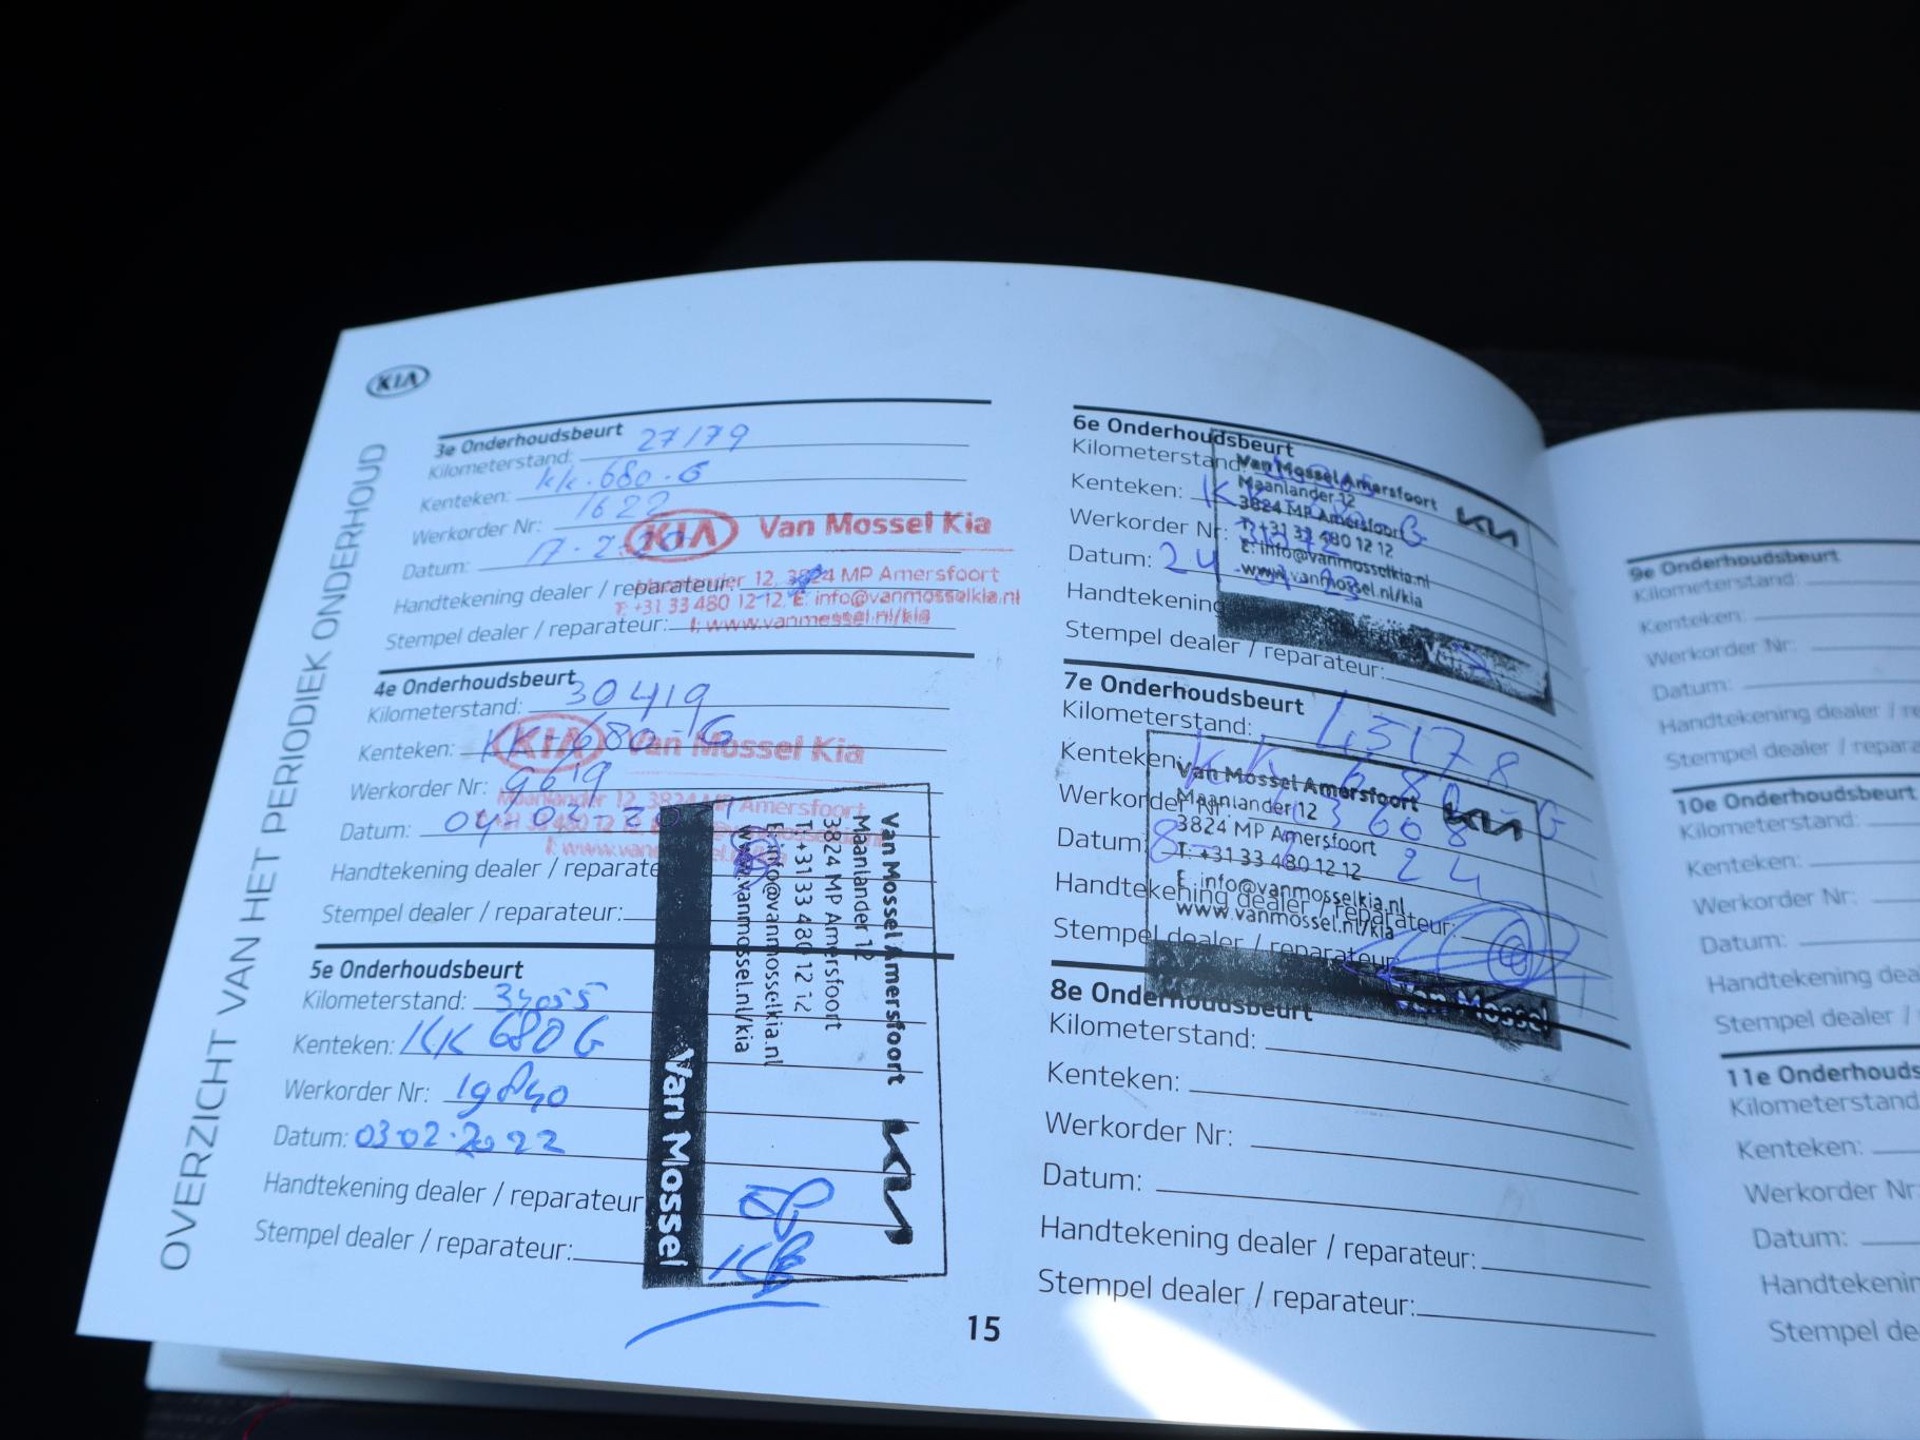 KIA
OVERZICHT VAN HET PERIODIEK ONDERHOUD
3e Onderhoudsbeurt
Kilometerstand: 27179
Kenteken: KK.680.G
Werkorder Nr: 1622
Datum: 17.2.20
Handtekening dealer / reparateur:
Stempel dealer / reparateur:
KIA Van Mossel Kia
Maanlander 12, 3824 MP Amersfoort
T: +31 33 480 12 12, E: info@vanmosselkia.nl
I: www.vanmossel.nl/kia
4e Onderhoudsbeurt
Kilometerstand: 30419
Kenteken: KK-680-G
Werkorder Nr: 9619
Datum: 04-03-20
Handtekening dealer / reparate
Stempel dealer / reparateur:
KIA Van Mossel Kia
Maanlander 12, 3824 MP Amersfoort
5e Onderhoudsbeurt
Kilometerstand: 34055
Kenteken: KK 680 G
Werkorder Nr: 19840
Datum: 03-02-2022
Handtekening dealer / reparateur
Stempel dealer / reparateur:
Van Mossel Amersfoort
Maanlander 12
3824 MP Amersfoort
T: +31 33 480 12 12
E: info@vanmosselkia.nl
www.vanmossel.nl/kia
KIA
Van Mossel
15
6e Onderhoudsbeurt
Kilometerstand:
Kenteken: KK G
Werkorder Nr:
Datum: 24 23
Handtekening
Stempel dealer / reparateur:
Van Mossel Amersfoort
Maanlander 12
3824 MP Amersfoort
T: +31 33 480 12 12
E: info@vanmosselkia.nl
www.vanmossel.nl/kia
KIA
7e Onderhoudsbeurt
Kilometerstand: 43178
Kenteken: KK 680-G
Werkorder Nr: 3608
Datum: 8- 24
Handtekening dealer / reparateur:
Stempel dealer / reparateur
Van Mossel Amersfoort
Maanlander 12
3824 MP Amersfoort
T: +31 33 480 12 12
E: info@vanmosselkia.nl
www.vanmossel.nl/kia
KIA
Van Mossel
8e Onderhoudsbeurt
Kilometerstand:
Kenteken:
Werkorder Nr:
Datum:
Handtekening dealer / reparateur:
Stempel dealer / reparateur:
9e Onderhoudsbeurt
Kilometerstand:
Kenteken:
Werkorder Nr:
Datum:
Handtekening dealer / re
Stempel dealer / repara
10e Onderhoudsbeurt
Kilometerstand:
Kenteken:
Werkorder Nr:
Datum:
Handtekening dea
Stempel dealer /
11e Onderhouds
Kilometerstand
Kenteken:
Werkorder Nr:
Datum:
Handtekenin
Stempel de